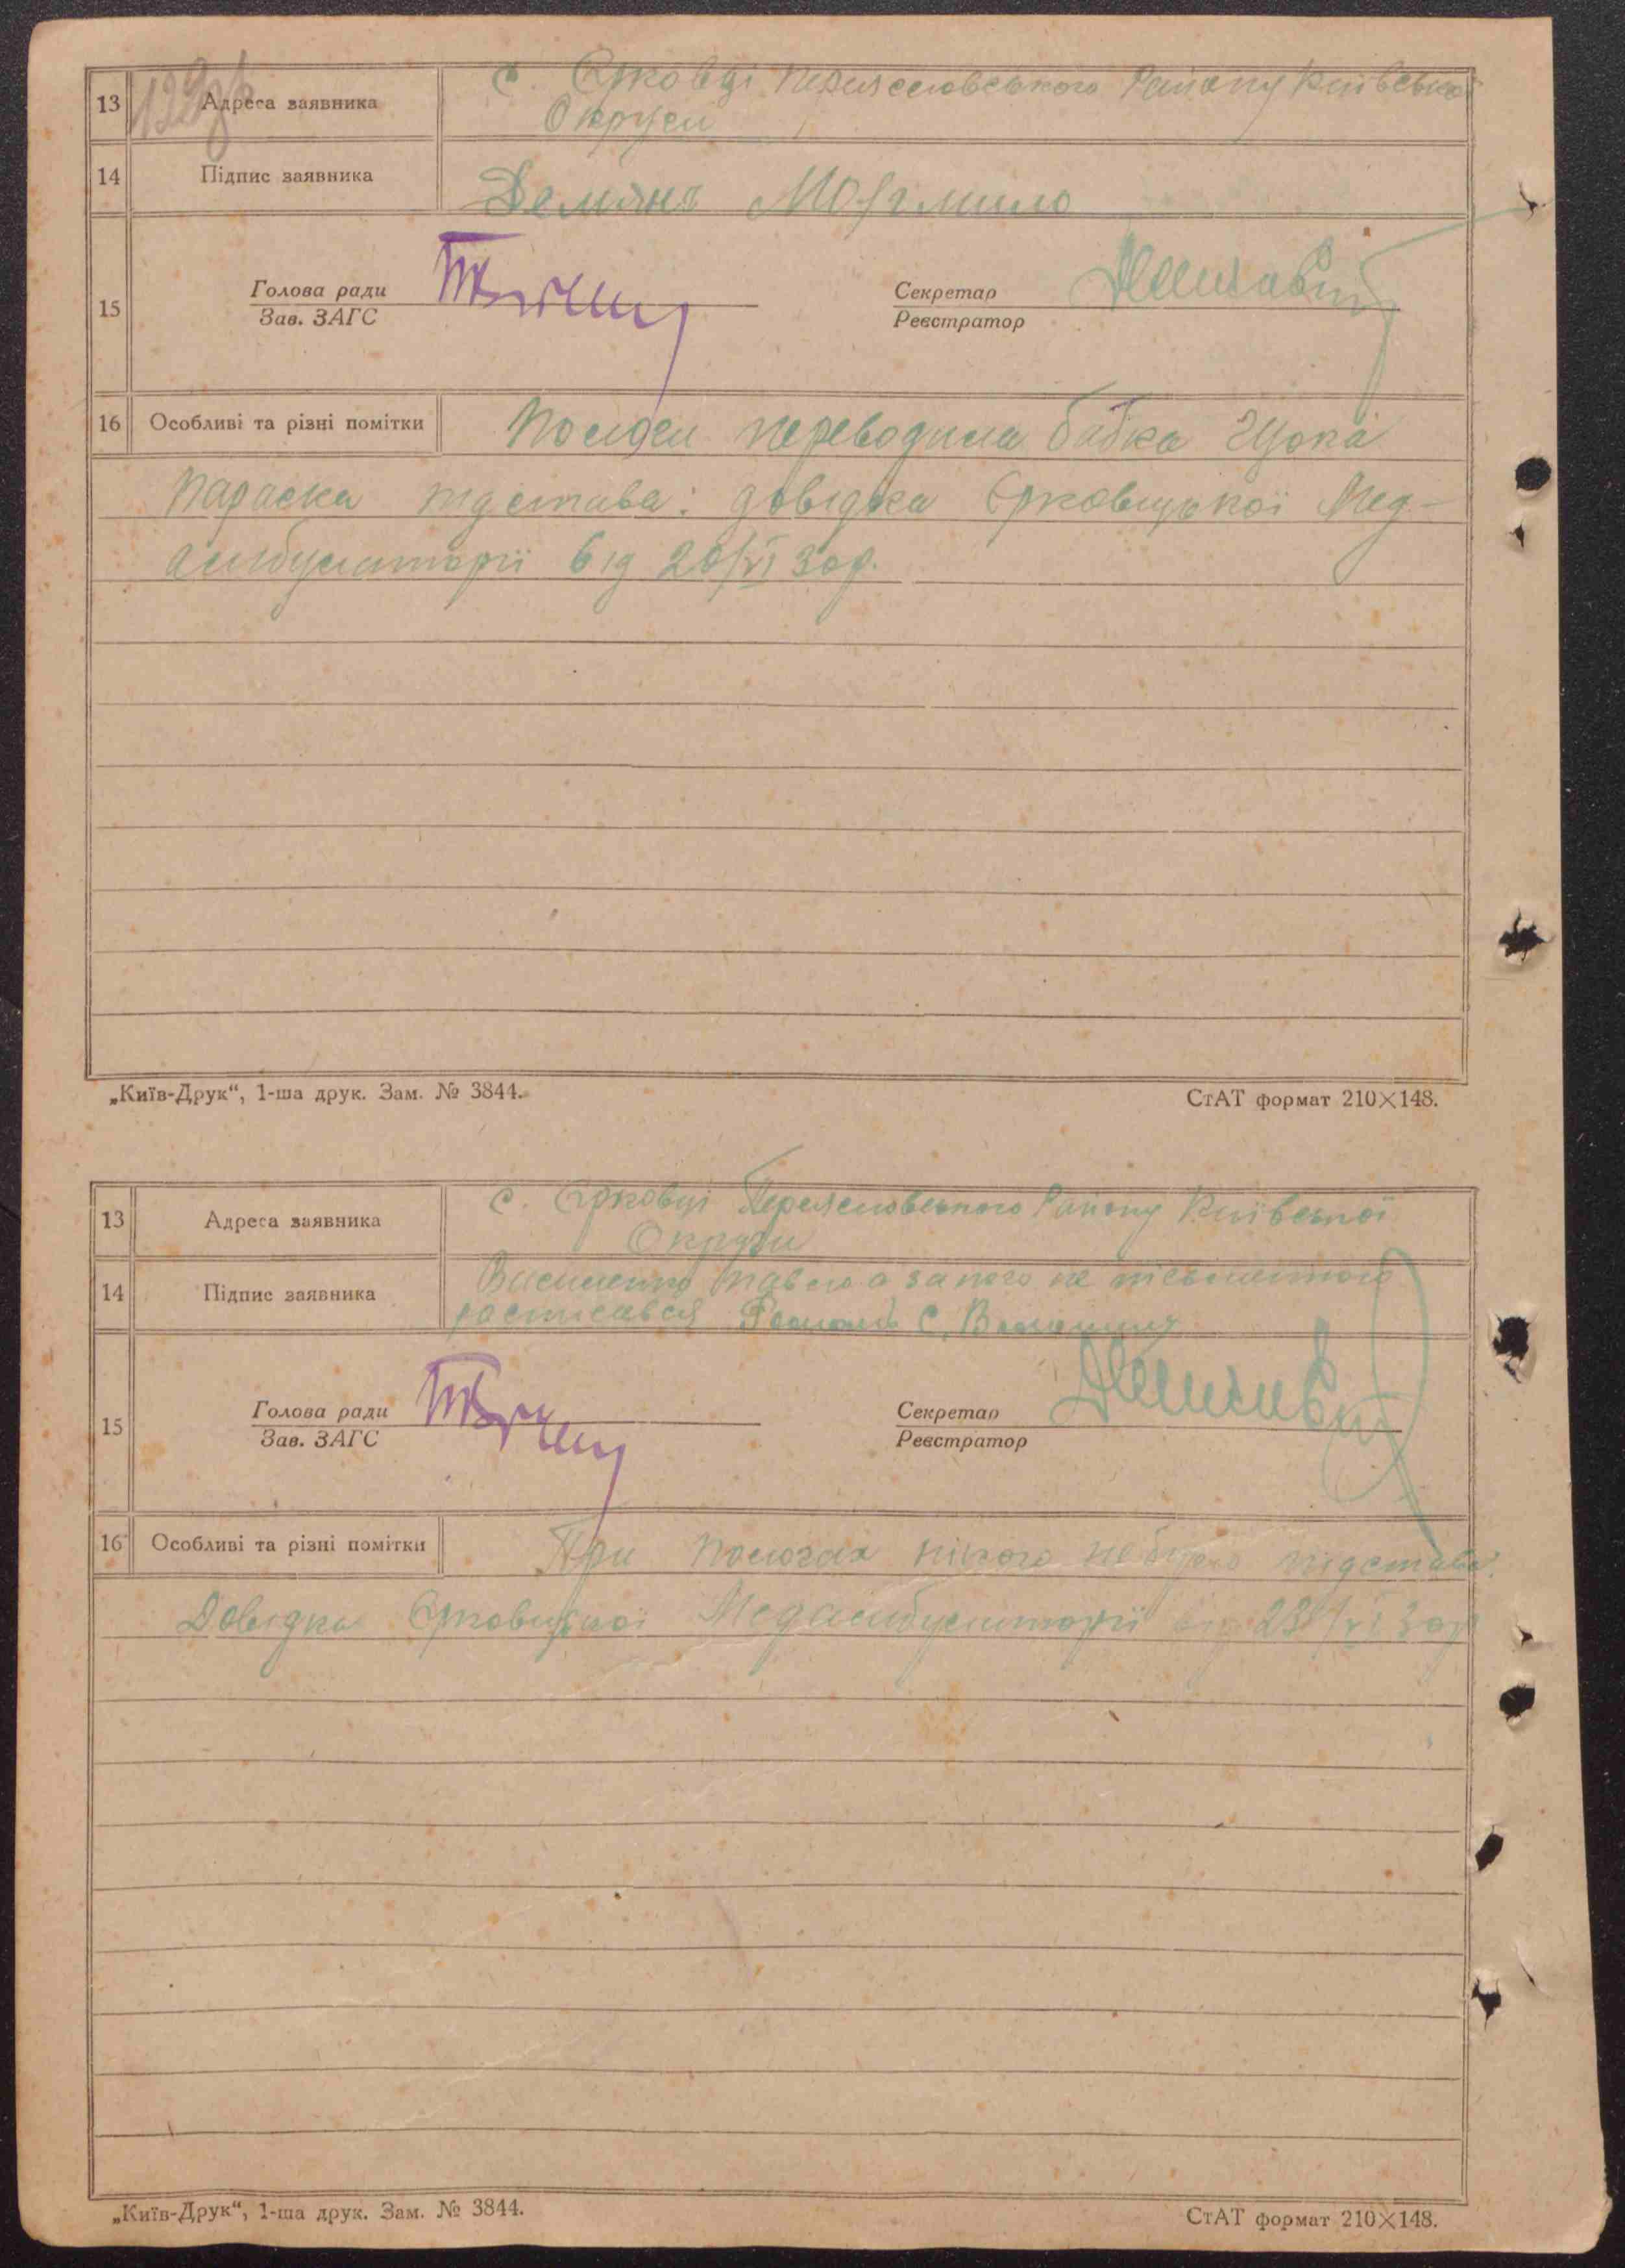 13 Адреса заявника с. Єрковці Переяславського Району Київської
Округи
14 Підпис заявника Демянъ
15 Голова ради Секретар
Зав. ЗАГС Реєстратор
16 Особливі та різні помітки Пологи переводила бабка
Параска підстава: довідка Єрковецької Мед-
амбулаторії від 20/VI 30р.
„Київ-Друк“, 1-ша друк. Зам. № 3844. СтАТ формат 210×148.
13 Адреса заявника с. Єрковці Переяславського Району Київської
Округи
14 Підпис заявника Василенко Павло а за него не письменного
росписався С.
15 Голова ради Секретар
Зав. ЗАГС Реєстратор
16 Особливі та різні помітки При пологах нікого не було підстава:
Довідка Єрковецької Медамбулаторії від /VI 30р
„Київ-Друк“, 1-ша друк. Зам. № 3844. СтАТ формат 210×148.